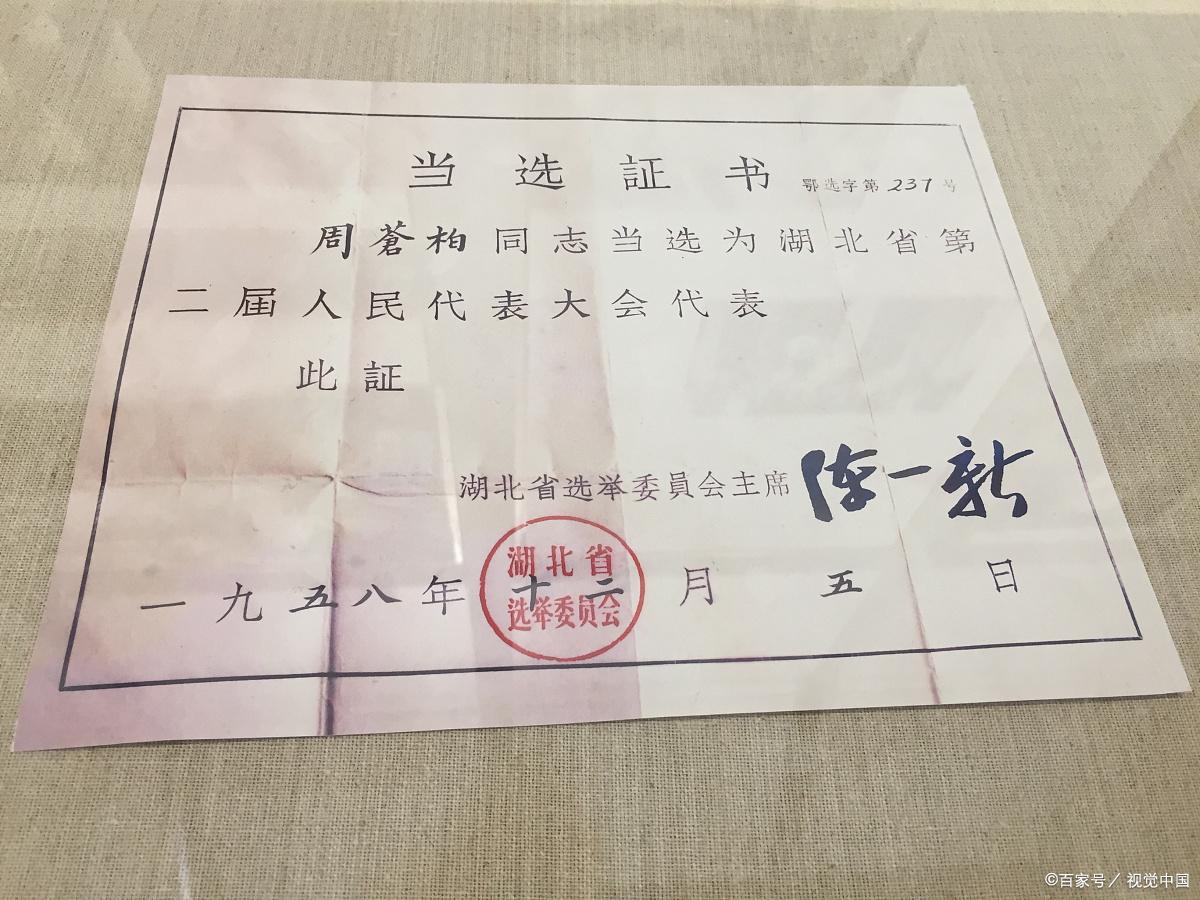 当选証书
鄂选字第237号
周蒼柏同志当选为湖北省第
二届人民代表大会代表
此証
湖北省选举委員会主席 陈一新
一九五八年十二月五日
湖北省
选举委员会
©百家号/视觉中国